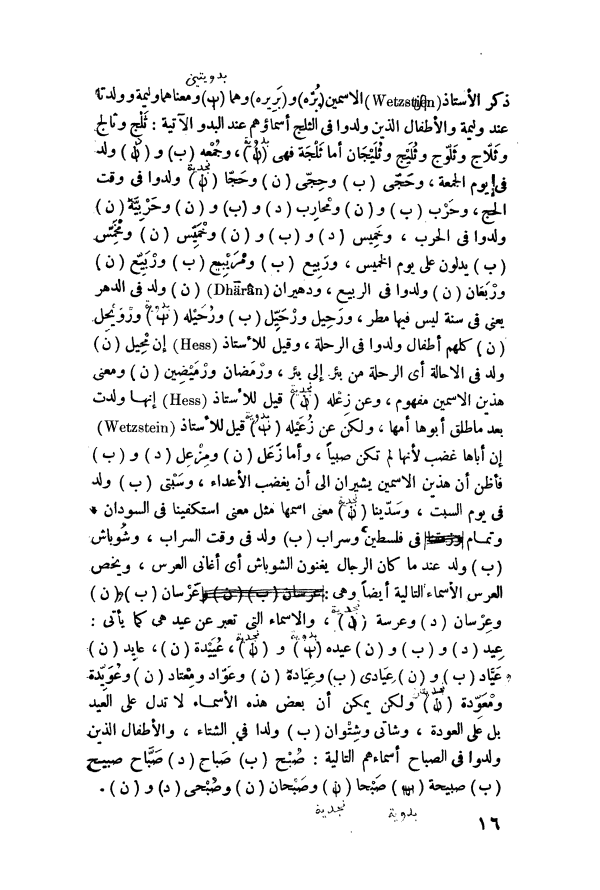 بدويتين
ذكر الأستاذ (Wetzstein) الاسمين (بُرّه) و(بَريره) وهما (ب) ومعناهما وليمة وولدتا
عند وليمة والأطفال الذين ولدوا فى الثلج أسماؤهم عند البدو الآتية : ثَلْج وثالج
وثَلاج وثَلّوج وثُلَيْج وثُلَيْجان أما ثَلْجَة فهى (ن) ، وجُمْعه (ب) و (ن) ولد
فى يوم الجمعة ، وحَجّى (ب) وحِجّى (ن) وحَجّا (ن) ولدوا فى وقت
الحج ، وحَرْب (ب) و(ن) ومُحارب (د) و (ب) و (ن) وحَرْبيَّة (ن)
ولدوا فى الحرب ، وخَميس (د) و (ب) و (ن) وخُمَيِّس (ن) ومُخَمِّس
(ب) يدلون على يوم الخميس ، ورَبيع (ب) ومْرَيْبيع (ب) ورْبَيّع (ن)
ورْبَعَان (ن) ولدوا فى الربيع ، ودهيران (Dhārān) (ن) ولد فى الدهر
يعنى فى سنة ليس فيها مطر ، ورَحيل ورْحَيّل (ب) ورُحَيْله (ن) ورْوَيْحِل
(ن) كلهم أطفال ولدوا فى الرحلة ، وقيل للأستاذ (Hess) إن مُحيل (ن)
ولد فى الاحالة أى الرحلة من بئر إلى بئر ، ورَمَضان ورْمَيْضِين (ن) ومعنى
هذين الاسمين مفهوم ، وعن زِعْله (ن) قيل للأستاذ (Hess) إنها ولدت
بعد ماطلق أبوها أمها ، ولكن عن زُعَيْله (ن) قيل للأستاذ (Wetzstein)
إن أباها غضب لأنها لم تكن صبياً ، وأما زَعَل (ن) ومِزْعِل (د) و (ب)
فأظن أن هذين الاسمين يشيران الى أن يغضب الأعداء ، وسَبْتى (ب) ولد
فى يوم السبت ، وسَدّينا (ن) معنى اسمها مثل معنى استكفينا فى السودان
وتمام فى فلسطين وسراب (ب) ولد فى وقت السراب ، وشُوباش
(ب) ولد عند ما كان الرجال يغنون الشوباش أى أغانى العرس ، ويخص
العرس الأسماء التالية أيضاً وهى : عرسان (ب) (ن) وعَرْسان (ب) (ن)
وعِرْسان (د) وعرسة (ن) ، والاسماء التى تعبر عن عيد هى كما يأتى :
عِيد (د) و (ب) و (ن) عيده (ب) و (ن) ، عُيَيْدة (ن) ، عايد (ن)
عَيَّاد (ب) و (ن) عِيَادى (ب) وعِيَادة (ن) وعَوّاد ومِعْتاد (ن) وعُوَيِّدة
ومْعَوِّدة (ن) ولكن يمكن أن بعض هذه الأسماء لا تدل على العيد
بل على العودة ، وشاتى وشِتْوان (ب) ولدا فى الشتاء ، والأطفال الذين
ولدوا فى الصباح أسماءهم التالية : صُبْح (ب) صَباح (د) صَبَّاح صبيح
(ب) صبيحة (ب) صَبْحا (ن) وصَبْحان (ن) وصُبْحى (د) و (ن) .
بدوية نجدية
١٦